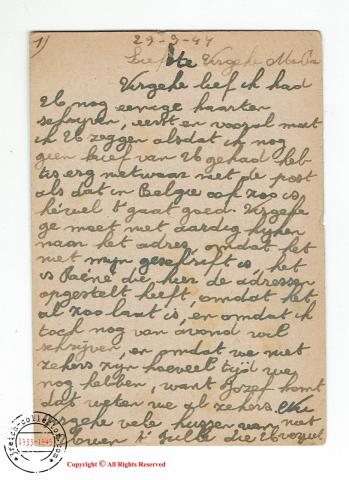 1)
29-9-44
Liefste Virgenie Maria
Virgenie lief ik had
U nog eenige kaarten
schrijven, eerst en vooral moet
ik U zeggen alsdat ik nog
geen brief van U gehad heb
tis erg nietwaar met de post
als dat in Belgie ook zoo is
hewel t gaat goed. Virgenie
ge moet niet aardig kijken
naar het adres, omdat het
niet mijn geschrift is, het
is René die hier de adressen
opgestelt heeft, omdat het
al zoo laat is, en omdat ik
toch nog van avond wil
schrijven, en omdat we niet
zekers zijn hoeveel tijd we
nog hebben, want Jozef komt
dat weten we al zekers. Nu
vele kussen van
die U vooral
treich-collector.com
1933-1945
Copyright © All Rights Reserved